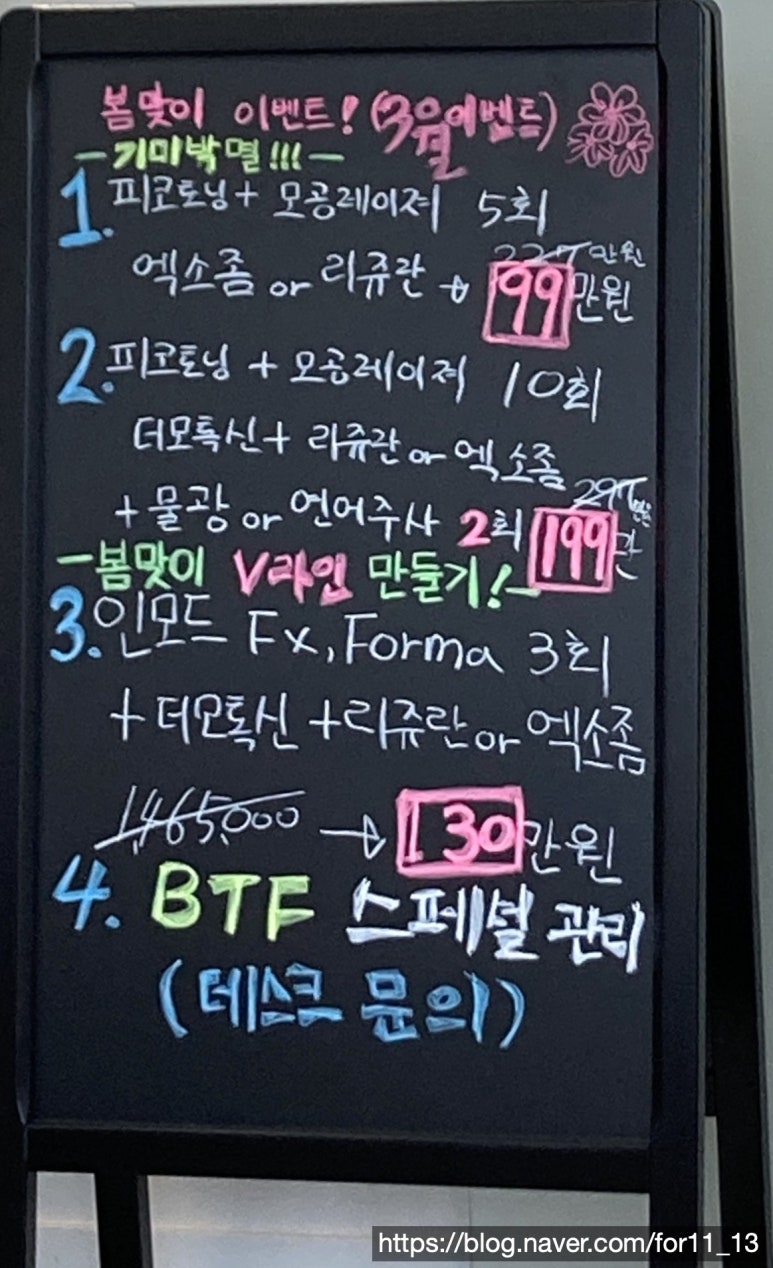 봄맞이 이벤트! (3월이벤트)
-기미박멸!!!-
1. 피코토닝+ 모공레이져 5회
만원
엑소좀 or 리쥬란 → 99만원
2. 피코토닝 + 모공레이져 10회
더모톡신+ 리쥬란 or 엑소좀
+ 물광 or 연어주사 2회 199만
-봄맞이 V라인 만들기!-
3. 인모드 Fx, Forma 3회
+ 더모톡신 +리쥬란 or 엑소좀
1,465,000 → 130만원
4. BTF 스페셜 관리
(데스크 문의)
https://blog.naver.com/for11_13